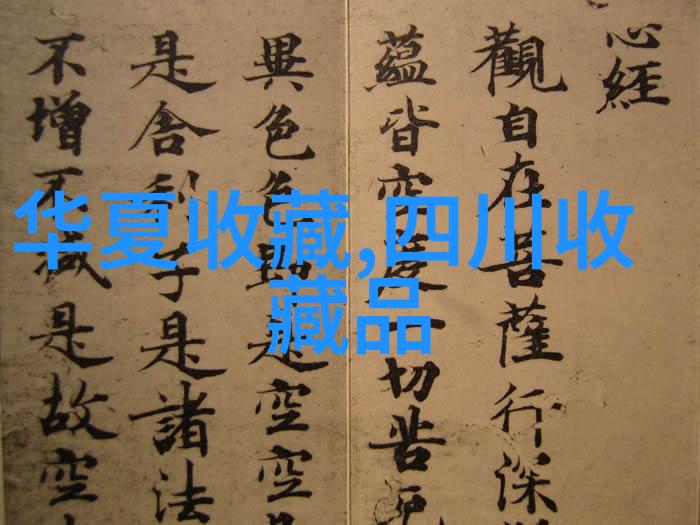 心經
觀自在菩薩行深
蘊皆空度一切苦厄
異色色即是空空
是舍利子是諸法
不增不減是故空
华夏收藏,四川收
藏品